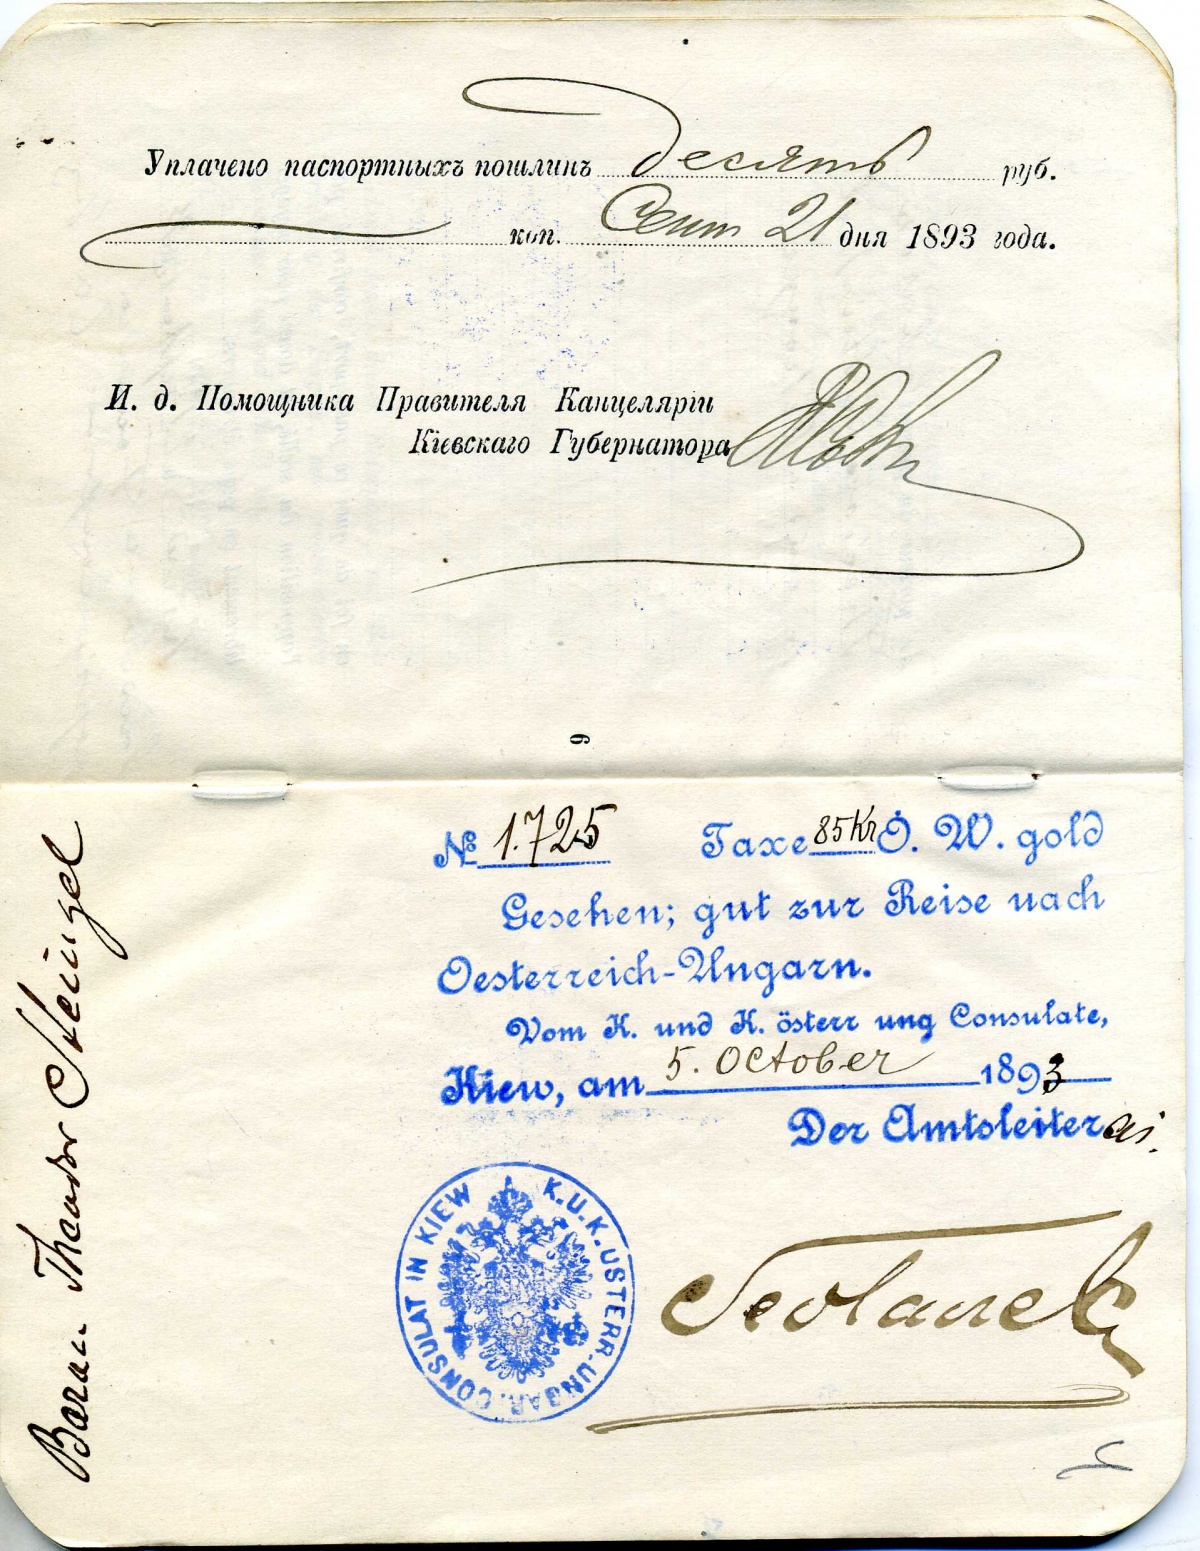 Уплачено паспортныхъ пошлинъ десять руб.
коп. Сент 21 дня 1893 года.
И. д. Помощника Правителя Канцеляріи
Кіевскаго Губернатора
6
№ 1.725 Taxe 85 Kr Ö. W. gold
Gesehen; gut zur Reise nach
Oesterreich-Ungarn.
Vom K. und K. österr ung Consulate,
Kiew, am 5. October 1893
Der Amtsleiter ai.
K.U.K. ÖSTERR.-UNGAR. CONSULAT IN KIEW
Baron Theodor Steingel